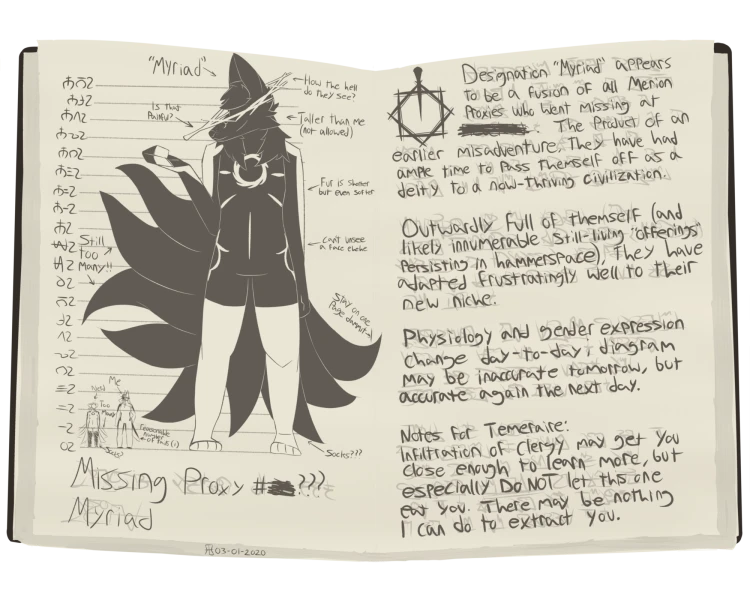 "Myriad"
How the hell
do they see?
Is that
Painful?
Taller than me
(not allowed)
Fur is shorter
but even softer
can't unsee
a face
Still
too
Many!!
Stay on one
Page dammit
Me
Too
Many
Reasonable
number
of tails (1)
Socks?
Socks???
Missing Proxy #???
Myriad
03-01-2020
Designation "Myriad" appears
to be a fusion of all Menion
Proxies who went missing at
. The Product of an
earlier misadventure, They have had
ample time to Pass themself off as a
deity to a now-thriving civilization.
Outwardly full of themself (and
likely innumerable still-living "offerings"
Persisting in hammerspace), They have
adapted frustratingly well to their
new niche.
Physiology and gender expression
change day-to-day; diagram
may be inaccurate tomorrow, but
accurate again the next day.
Notes for Temeraire:
Infiltration of Clergy may get you
close enough to learn more, but
especially DO NOT let this one
eat you. There may be nothing
I can do to extract you.